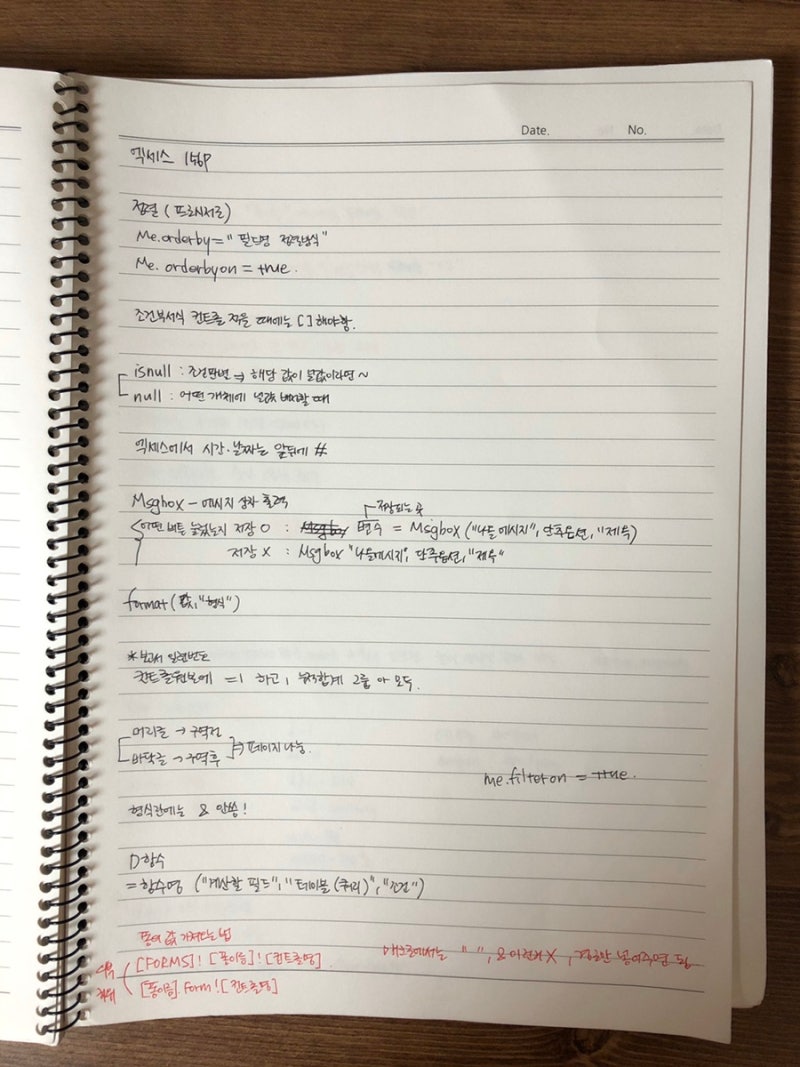 Date. No.
엑세스 156P
정렬 ( 프로시저로 )
Me.orderby = " 필드명 정렬방식 "
Me. orderbyon = true.
조건부서식 컨트롤 적을 때에는 [ ] 해야함.
isnull : 조건판변 ⇒ 해당 값이 널값이라면 ~
null : 어떤 개체에 널값 때
엑세스에서 시간·날짜는 앞뒤에 #
Msgbox – 메시지 상자 출력
저장되는 곳
어떤 버튼 눌렀는지 저장 O : 변수 = Msgbox ("나올 메시지", 단추옵션, "제목")
저장 X : Msgbox "나올메시지", 단추옵션, "제목"
format ( 값, "형식" )
* 보고서 일련번호
컨트롤원본에 =1 하고, 누적합계 그룹 or 모두.
머리글 → 구역전
바닥글 → 구역후 ⇒ 페이지나눔.
me.filteron = true.
형식란에는 & 안씀!
D함수
= 함수명 ("계산할 필드", "테이블 (쿼리)", "조건")
폼에 값 가져다는법
[FORMS]! [폼이름]! [컨트롤명]
매크로에서는 " ", & 이런거 X, 넣어주면 됨
하위 [폼이름]. form ! [컨트롤명]